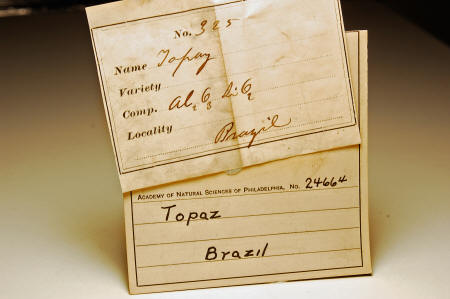 No. 325
Name Topaz
Variety
Comp. Al2O3 SiO2
Locality
Brazil
ACADEMY OF NATURAL SCIENCES OF PHILADELPHIA, No. 24664
Topaz
Brazil